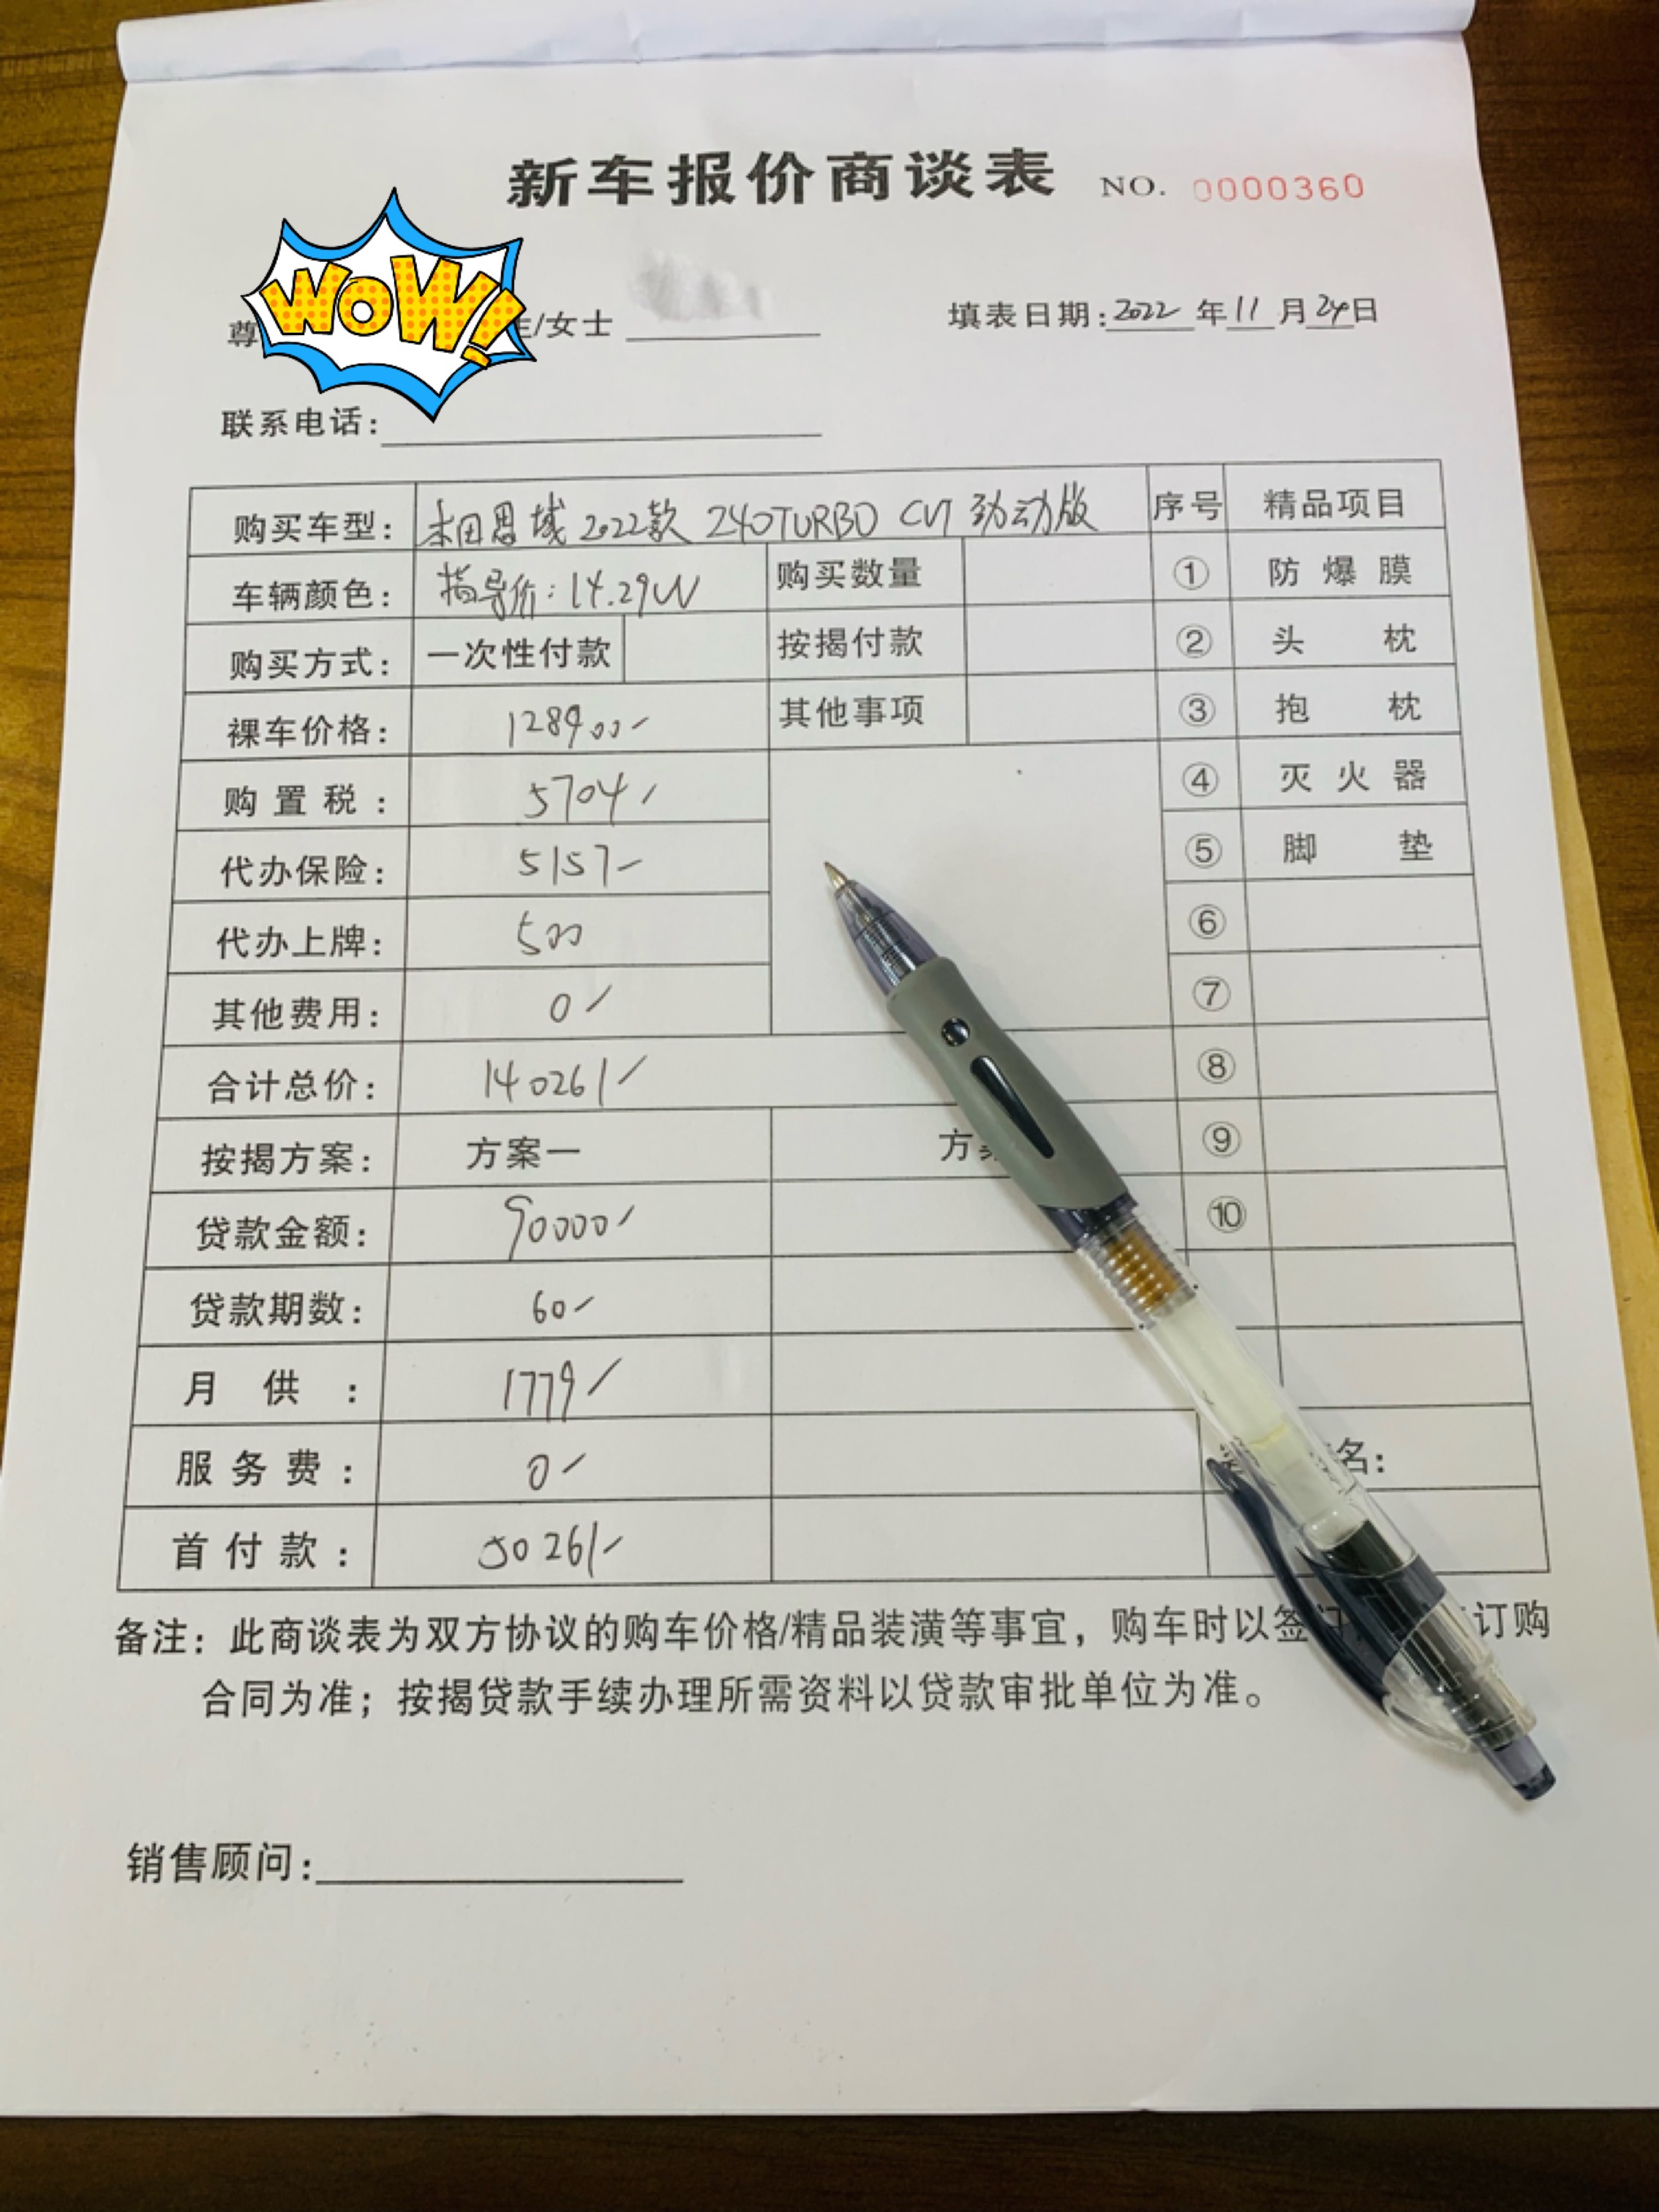 新车报价商谈表 NO. 0000360
WOW!
尊 生/女士 填表日期:2022年11月24日
联系电话:
购买车型: 本田思域2022款 240TURBO CVT 劲动版 序号 精品项目
车辆颜色: 指导价:14.29W 购买数量 ① 防爆膜
购买方式: 一次性付款 按揭付款 ② 头枕
裸车价格: 128900 其他事项 ③ 抱枕
购置税: 5704 ④ 灭火器
代办保险: 5157 ⑤ 脚垫
代办上牌: 500 ⑥
其他费用: 0 ⑦
合计总价: 140261 ⑧
按揭方案: 方案一 方 ⑨
贷款金额: 90000 ⑩
贷款期数: 60
月供: 1779
服务费: 0 名:
首付款: 50261
备注:此商谈表为双方协议的购车价格/精品装潢等事宜,购车时以签 订购
合同为准;按揭贷款手续办理所需资料以贷款审批单位为准。
销售顾问: